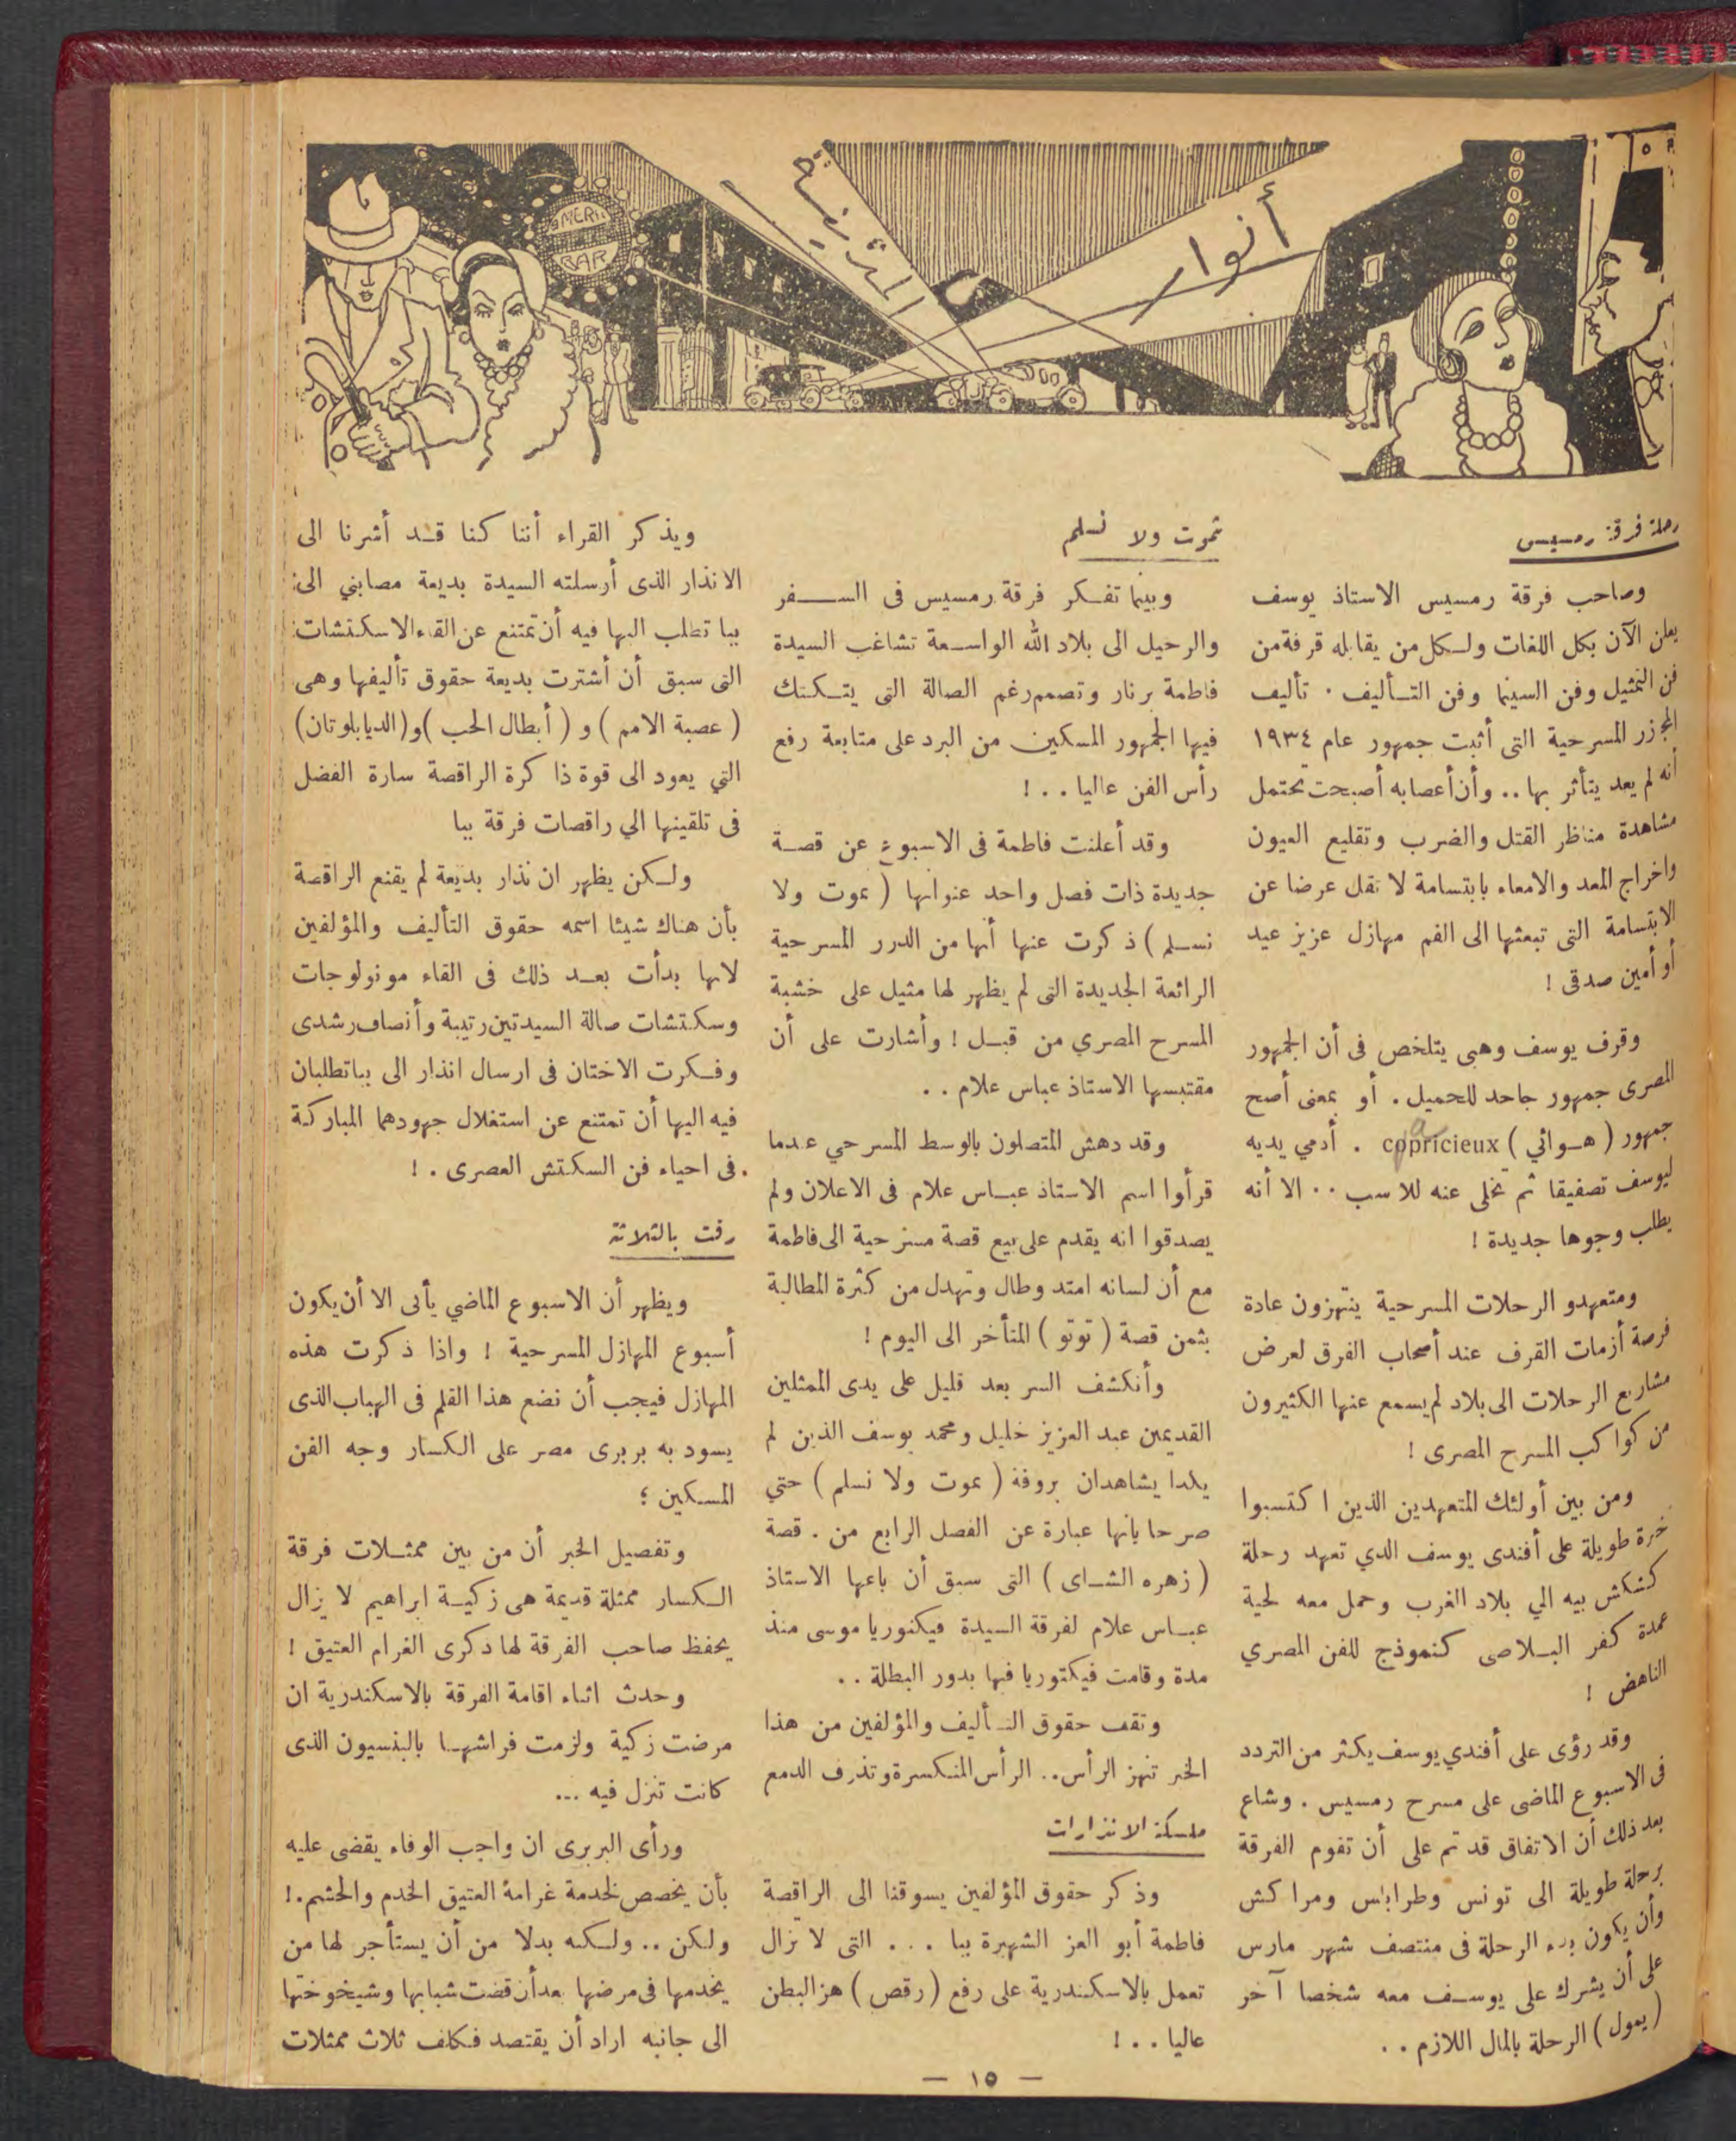 أنوار
المدينة
AMERI
BAR
رحلة فرقة رمسيس
وصاحب فرقة رمسيس الاستاذ يوسف
يعلن الآن بكل اللغات ولكل من يقابله قرفة من
فن التمثيل وفن السينما وفن التأليف . تأليف
المجزر المسرحية التى أثبت جمهور عام ١٩٣٤
أنه لم يعد يتأثر بها .. وأن أعصابه أصبحت تحتمل
مشاهدة مناظر القتل والضرب وتقليع العيون
واخراج المعد والامعاء بابتسامة لا تقل عرضا عن
الابتسامة التى تبعثها الى الفم مهازل عزيز عيد
أو أمين صدقى !
وقرف يوسف وهبى يتلخص فى أن الجمهور
المصرى جمهور جاحد للجميل . أو بمعنى أصح
جمهور ( هوائي ) copricieux . أدمي يديه
ليوسف تصفيقا ثم تخلى عنه للاسب .. الا أنه
يطلب وجوها جديدة !
ومتعهدو الرحلات المسرحية ينتهزون عادة
فرصة أزمات القرف عند أصحاب الفرق لعرض
مشاريع الرحلات الى بلاد لم يسمع عنها الكثيرون
من كواكب المسرح المصرى !
ومن بين أولئك المتعهدين الذين اكتسبوا
خبرة طويلة على أفندى يوسف الدي تعهد رحلة
كشكش بيه الي بلاد الغرب وحمل معه لحية
عمدة كفر البلاصى كنموذج للفن المصري
الناهض !
وقد رؤى على أفندي يوسف يكثر من التردد
فى الاسبوع الماضى على مسرح رمسيس . وشاع
بعد ذلك أن الاتفاق قد تم على أن تقوم الفرقة
برحلة طويلة الى تونس وطرابلس ومراكش
وأن يكون بدء الرحلة فى منتصف شهر مارس
على أن يشرك على يوسف معه شخصا آخر
( يمول ) الرحلة بالمال اللازم ..
نموت ولا نسلم
وبينما تفكر فرقة رمسيس فى السفر
والرحيل الى بلاد الله الواسعة تشاغب السيدة
فاطمة برنار وتصمم رغم الصالة التى يتكتك
فيها الجمهور المسكين من البرد على متابعة رفع
رأس الفن عاليا .. !
وقد أعلنت فاطمة فى الاسبوع عن قصة
جديدة ذات فصل واحد عنوانها ( نموت ولا
نسلم ) ذكرت عنها أنها من الدرر المسرحية
الرائعة الجديدة التى لم يظهر لها مثيل على خشبة
المسرح المصري من قبل ! وأشارت على أن
مقتبسها الاستاذ عباس علام ..
وقد دهش المتصلون بالوسط المسرحي عدما
قرأوا اسم الاستاذ عباس علام فى الاعلان ولم
يصدقوا انه يقدم على بيع قصة مسرحية الى فاطمة
مع أن لسانه امتد وطال وتهدل من كثرة المطالبة
بثمن قصة ( توتو ) المتأخر الى اليوم !
وأنكشف السر بعد قليل على يدى الممثلين
القديمين عبد العزيز خليل ومحمد يوسف الذين لم
يكدا يشاهدان بروفة ( نموت ولا نسلم ) حتي
صرحا بانها عبارة عن الفصل الرابع من . قصة
( زهره الشاى ) التى سبق أن باعها الاستاذ
عباس علام لفرقة السيدة فيكتوريا موسى منذ
مدة وقامت فيكتوريا فيها بدور البطلة ..
وتقف حقوق التأليف والمؤلفين من هذا
الخبر تنهز الرأس .. الرأس المنكسرة وتذرف الدمع
ملكة الانذارات
وذكر حقوق المؤلفين يسوقنا الى الراقصة
فاطمة أبو العز الشهيرة ببا ... التى لا تزال
تعمل بالاسكندرية على رفع ( رقص ) هز البطن
عاليا .. !
ويذكر القراء أننا كنا قد أشرنا الى
الانذار الذى أرسلته السيدة بديعة مصابني الى
ببا تطلب اليها فيه أن تمتنع عن القاء الاسكتشات
التى سبق أن أشترت بديعة حقوق تأليفها وهى
( عصبة الامم ) و ( أبطال الحب ) و ( الديابلوتان )
التي يعود الى قوة ذاكرة الراقصة سارة الفضل
فى تلقينها الي راقصات فرقة ببا
ولكن يظهر ان نذار بديعة لم يقنع الراقصة
بأن هناك شيئا اسمه حقوق التأليف والمؤلفين
لانها بدأت بعد ذلك فى القاء مونولوجات
وسكتشات صالة السيدتين رتيبة وأنصاف رشدى
وفكرت الاختان فى ارسال انذار الى ببا تطلبان
فيه اليها أن تمتنع عن استغلال جهودهما المباركة
فى احياء فن السكتش العصرى . !
رفت بالثلاثة
ويظهر أن الاسبوع الماضي يأبى الا أن يكون
أسبوع المهازل المسرحية ! واذا ذكرت هذه
المهازل فيجب أن نضع هذا القلم فى الهباب الذى
يسود به بربرى مصر على الكسار وجه الفن
المسكين ؛
وتفصيل الخبر أن من بين ممثلات فرقة
الكسار ممثلة قديمة هى زكية ابراهيم لا يزال
يحفظ صاحب الفرقة لها ذكرى الغرام العتيق !
وحدث اثناء اقامة الفرقة بالاسكندرية ان
مرضت زكية ولزمت فراشها بالبنسيون الذى
كانت تنزل فيه ...
ورأى البربرى ان واجب الوفاء يقضى عليه
بأن يخصص لخدمة غرامة العتيق الخدم والحشم . !
ولكن .. ولكنه بدلا من أن يستأجر لها من
يخدمها فى مرضها بعد أن قضت شبابها وشيخوختها
الى جانبه اراد أن يقتصد فكلف ثلاث ممثلات
— ١٥ —